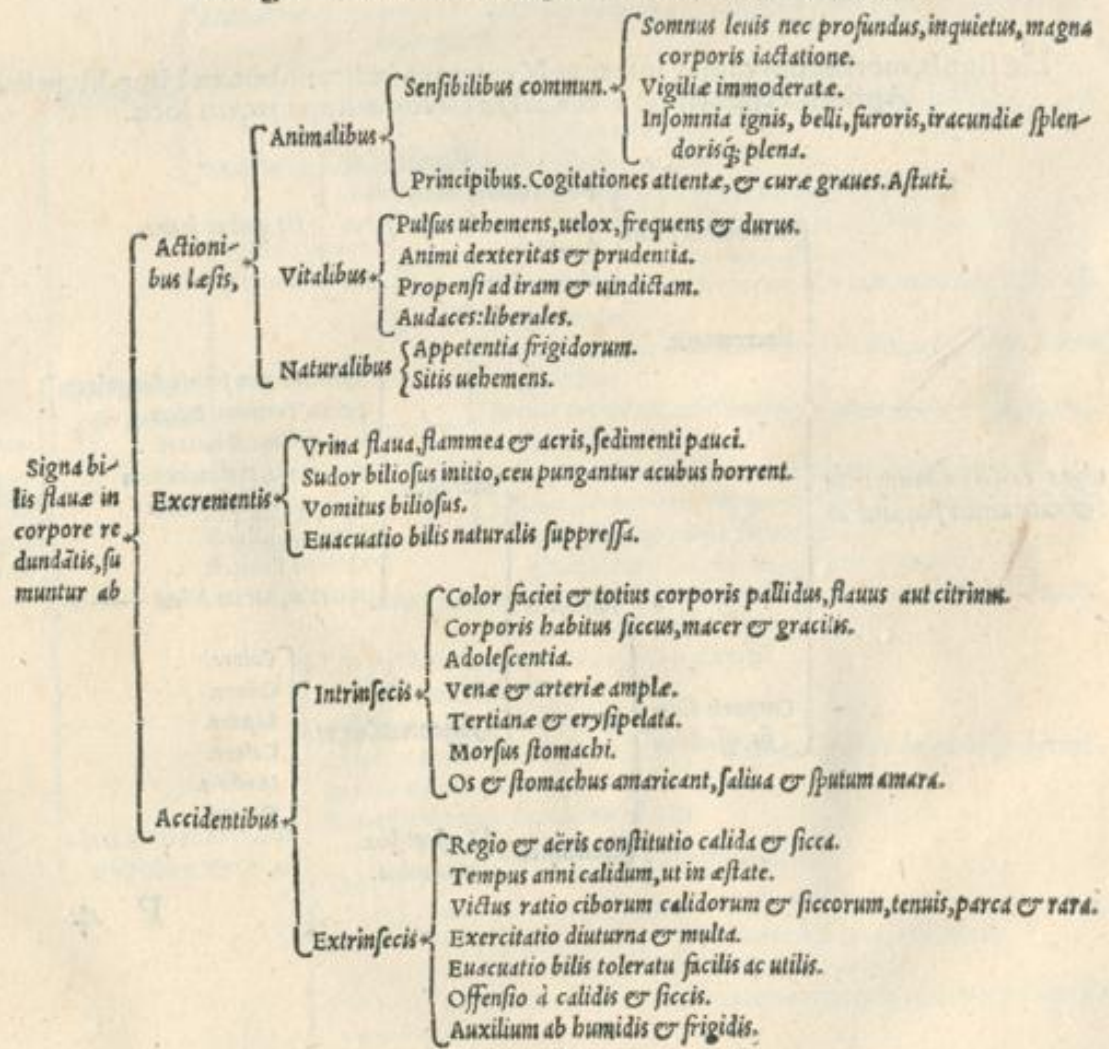 Signa bi-
lis flauæ in
corpore re
dundãtis, su
muntur ab
Actioni-
bus læsis,
Animalibus
Sensibilibus commun.
Somnus leuis nec profundus, inquietus, magna
corporis iactatione.
Vigiliæ immoderatæ.
Insomnia ignis, belli, furoris, iracundiæ splen-
dorisq́; plena.
Principibus. Cogitationes attentæ, & curæ graues. Astuti.
Vitalibus
Pulsus uehemens, uelox, frequens & durus.
Animi dexteritas & prudentia.
Propensi ad iram & uindictam.
Audaces: liberales.
Naturalibus
Appetentia frigidorum.
Sitis uehemens.
Excrementis
Vrina flaua, flammea & acris, sedimenti pauci.
Sudor biliosus initio, ceu pungantur acubus horrent.
Vomitus biliosus.
Euacuatio bilis naturalis suppressa.
Accidentibus
Intrinsecis
Color faciei & totius corporis pallidus, flauus aut citrinus.
Corporis habitus siccus, macer & gracilis.
Adolescentia.
Venæ & arteriæ amplæ.
Tertianæ & erysipelata.
Morsus stomachi.
Os & stomachus amaricant, saliua & sputum amara.
Extrinsecis
Regio & aëris constitutio calida & sicca.
Tempus anni calidum, ut in æstate.
Victus ratio ciborum calidorum & siccorum, tenuis, parca & rara.
Exercitatio diuturna & multa.
Euacuatio bilis toleratu facilis ac utilis.
Offensio à calidis & siccis.
Auxilium ab humidis & frigidis.